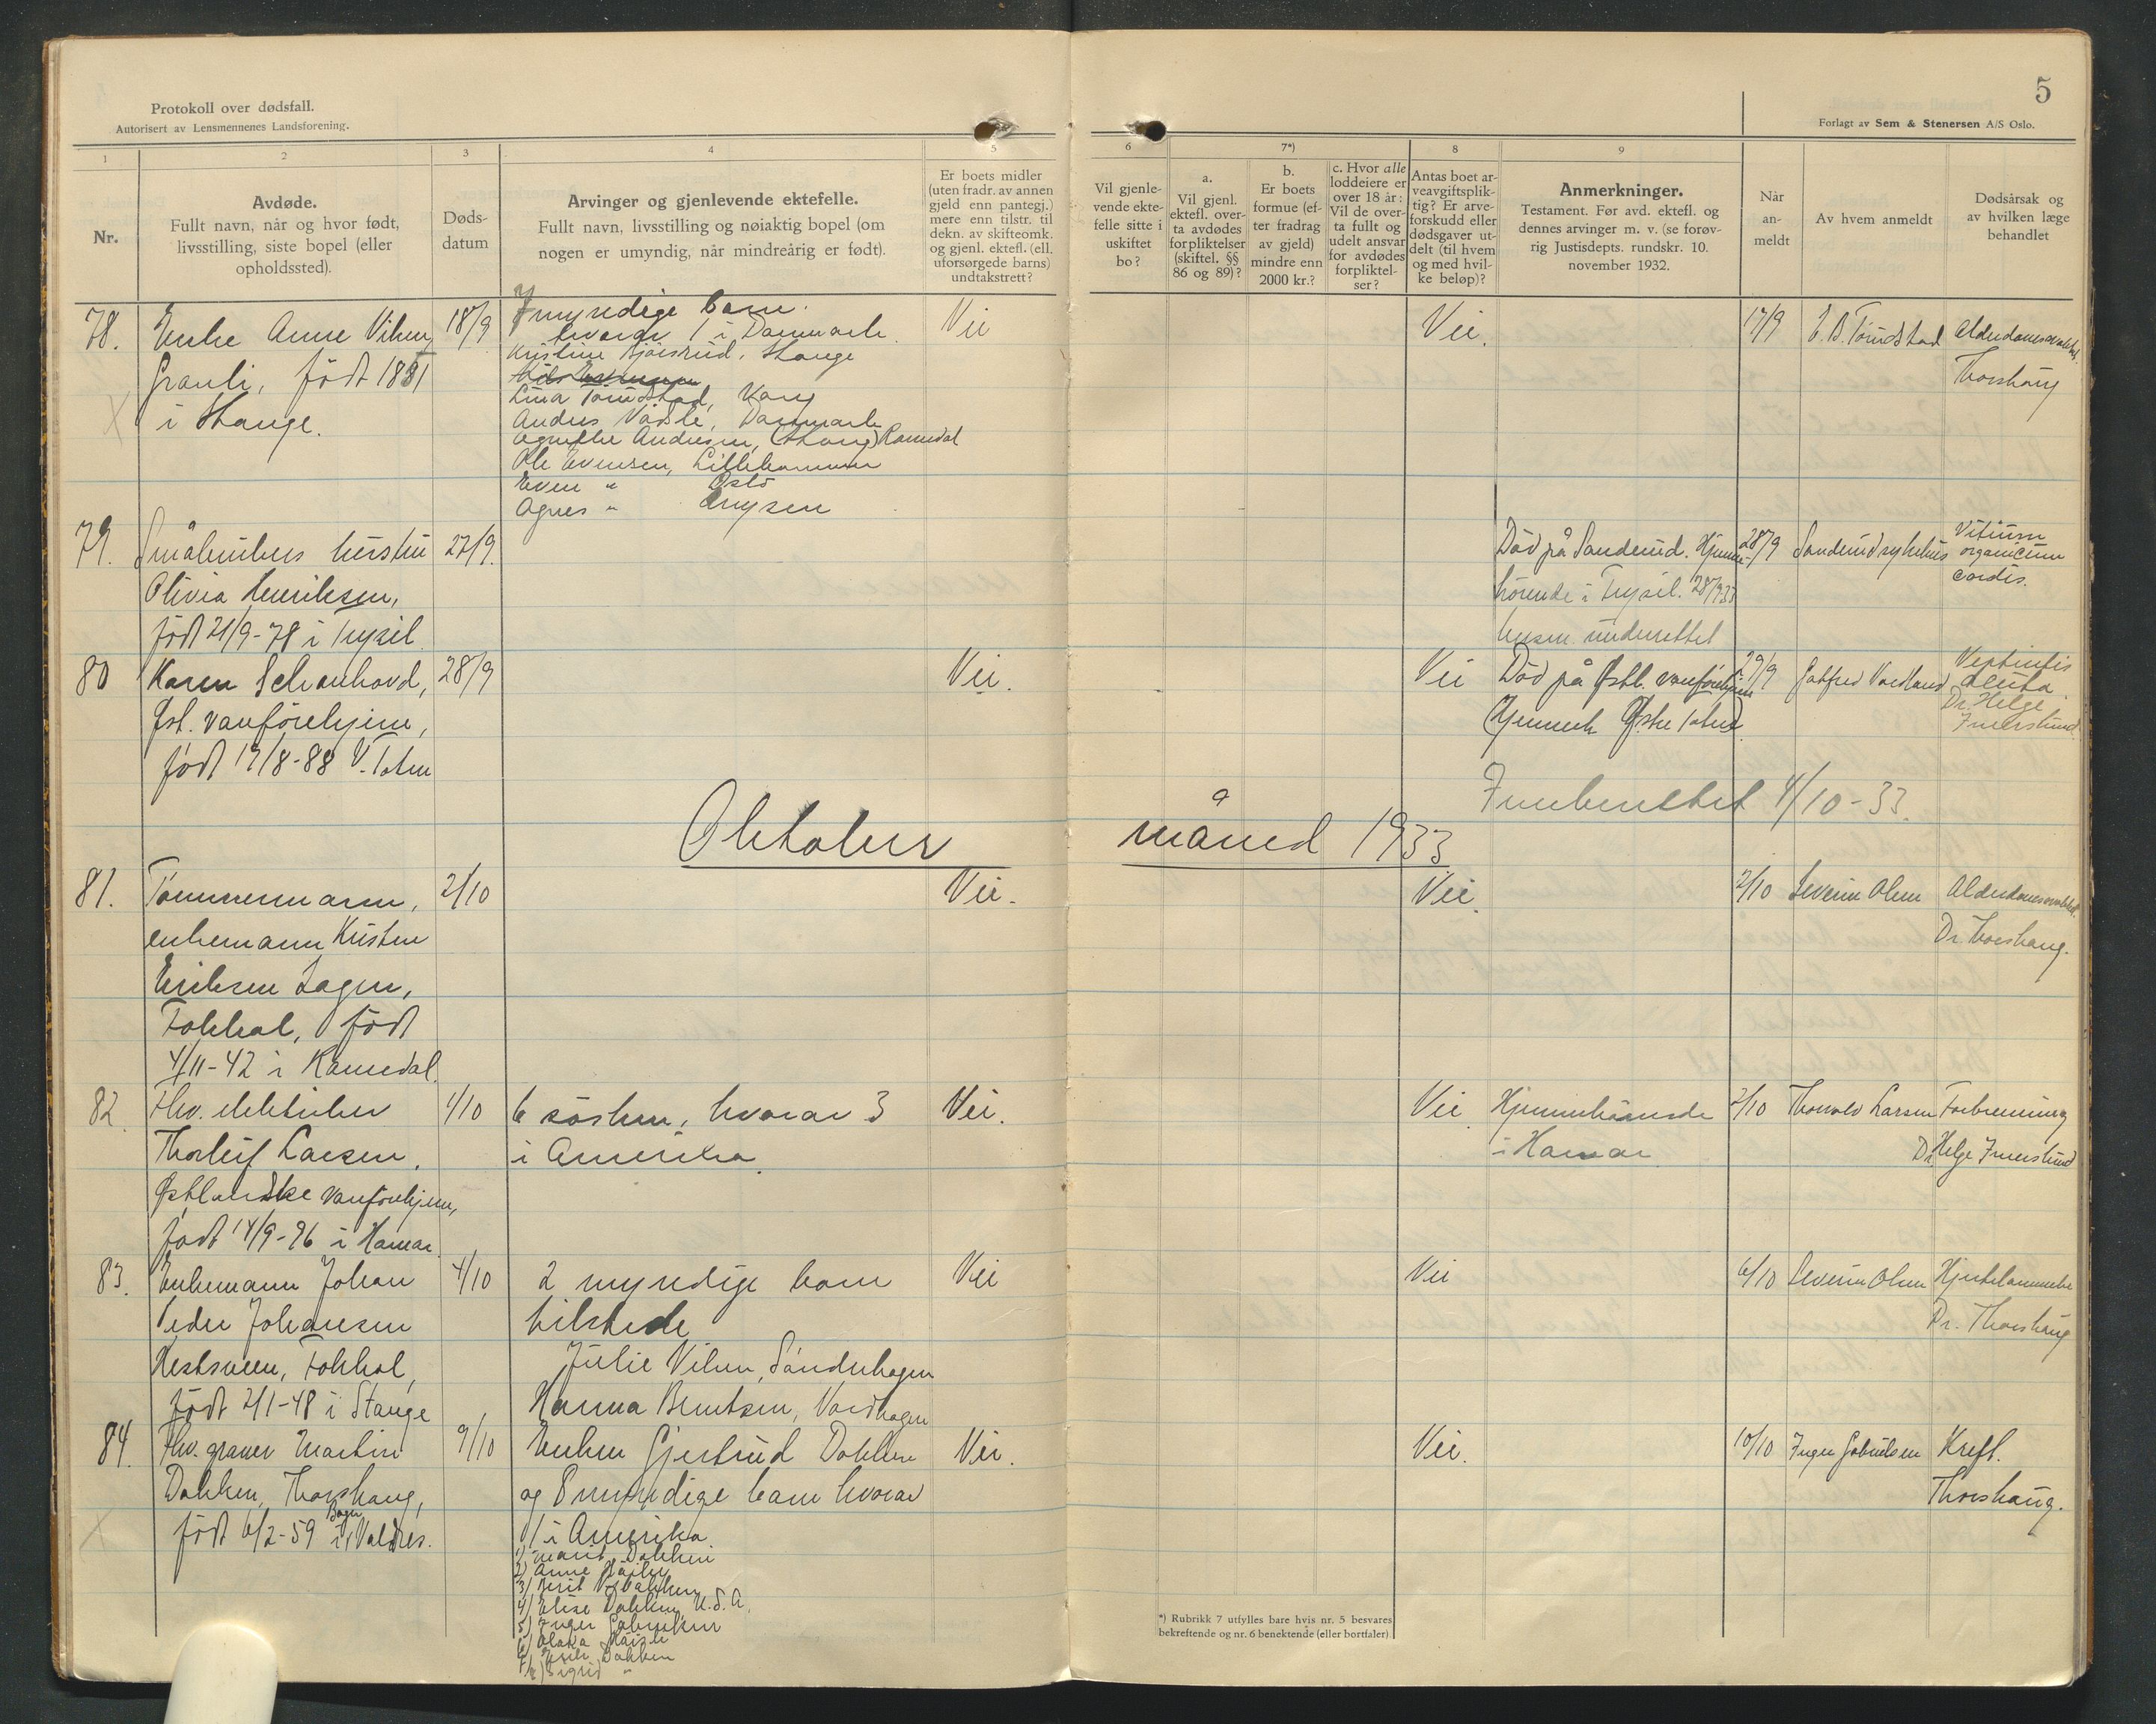 5
Protokoll over dødsfall.
Autorisert av Lensmennenes Landsforening.
Forlagt av Sem & Stenersen A/S Oslo.
1
2
3
4
5
6
7*)
8
9
Nr.
Avdøde.
Fullt navn, når og hvor født,
livsstilling, siste bopel (eller
opholdssted).
Døds-
datum
Arvinger og gjenlevende ektefelle.
Fullt navn, livsstilling og nøiaktig bopel (om
nogen er umyndig, når mindreårig er født).
Er boets midler
(uten fradr. av annen
gjeld enn pantegj.)
mere enn tilstr. til
dekn. av skifteomk.
og gjenl. ektefl. (ell.
uforsørgede barns)
undtakstrett?
Vil gjenle-
vende ekte-
felle sitte i
uskiftet
bo?
a.
Vil gjenl.
ektefl. over-
ta avdødes
forpliktelser
(skiftel. §§
86 og 89)?
b.
Er boets
formue (ef-
ter fradrag
av gjeld)
mindre enn
2000 kr.?
c. Hvor alle
loddeiere er
over 18 år:
Vil de over-
ta fullt og
udelt ansvar
for avdødes
forpliktel-
ser?
Antas boet ar-
veavgiftsplik-
tig? Er arve-
forskudd eller
dødsgaver ut-
delt (til hvem
og med hvil-
ke beløp)?
Anmerkninger.
Testament. Før avd. ektefl. og
dennes arvinger m. v. (se forøv-
rig Justisdepts. rundskr. 10.
november 1932.
Når
an-
meldt
Av hvem anmeldt
Dødsårsak og
av hvilken læge
behandlet
78.
Enke Anne Viken
Granli, født 1831
i Stange.
18/9
7 myndige barn.
hvorav 1 i Danmark
Kristine Bjørsrud, Stange
Lina Tomdstad, Vang
Anders Vådsle, Danmark
Andersen, (Stange) Romedal
Ole Evensen, Lillehammer
Even " Oslo
Agnes "
Nei
Nei.
17/9
Alderdomssvakhet
Thorshaug
79.
Småbrukers hustru
Olivia Henriksen,
født 21/9-78 i Trysil
27/9.
Død på Sanderud. Hjemme-
hørende i Trysil. 28/9 33
lensm. underrettet
28/9
Sanderud sykehus
Vitium
organicum
cordis.
80
Karen Schanhovd,
Øst. vanførehjem,
født 17/8-88 V. Toten
28/9
Nei.
Nei
Død på Østl. vanførehjem
Hjemmeh Østre Toten
29/9
Gotfred Vardland
acuta.
Dr. Helge
Innerslund
Innberettet 4/10-33.
Oktober måned 1933
81.
Tømmermann,
enkemann Kristen
Eriksen Hagen,
Tokkol, født
4/11-42 i Romedal.
2/10
Nei.
Nei.
2/10
Severin Olsen
Alderdomssvakhet.
Dr Thorshaug.
82.
Fhv. elektriker
Thorleif Larsen,
Østlandske vanførehjem,
født 14/9-96 i Hamar.
1/10
6 søsken, hvorav 3
i Amerika
Nei.
Nei.
Hjemmehørende
i Hamar
2/10
Thorvald Larsen
Forbrenning
Dr Helge Innerslund
83.
Enkemann Johan
Peder Johansen
Hestsveen, Tokkol,
født 2/1-48 i Stange
4/10
2 myndige barn
tilstede
Julie Viken, Sanderhagen
Hanna Berntsen, Vardhagen
Nei
Nei
6/10
Severin Olsen
Hjertelammelse
Dr. Thorshaug
84.
Fhv. graver Martin
Dokken, Thorshaug,
født 6/2-59 i Bagn Valdres.
9/10
Enken Gjertrud Dokken
og 8 myndige barn hvorav
1 i Amerika
1) Marit Dokken
2) Anne
3) Berit Dokken
4) Elise Dokken U.S.A.
5) Inger Gabrielsen
6)
7) Dokken
8) Sigrid "
Nei.
Nei.
10/10
Inger Gabrielsen
Kreft.
Thorshaug.
*) Rubrikk 7 utfylles bare hvis nr. 5 besvares
bekreftende og nr. 6 benektende (eller bortfaler)